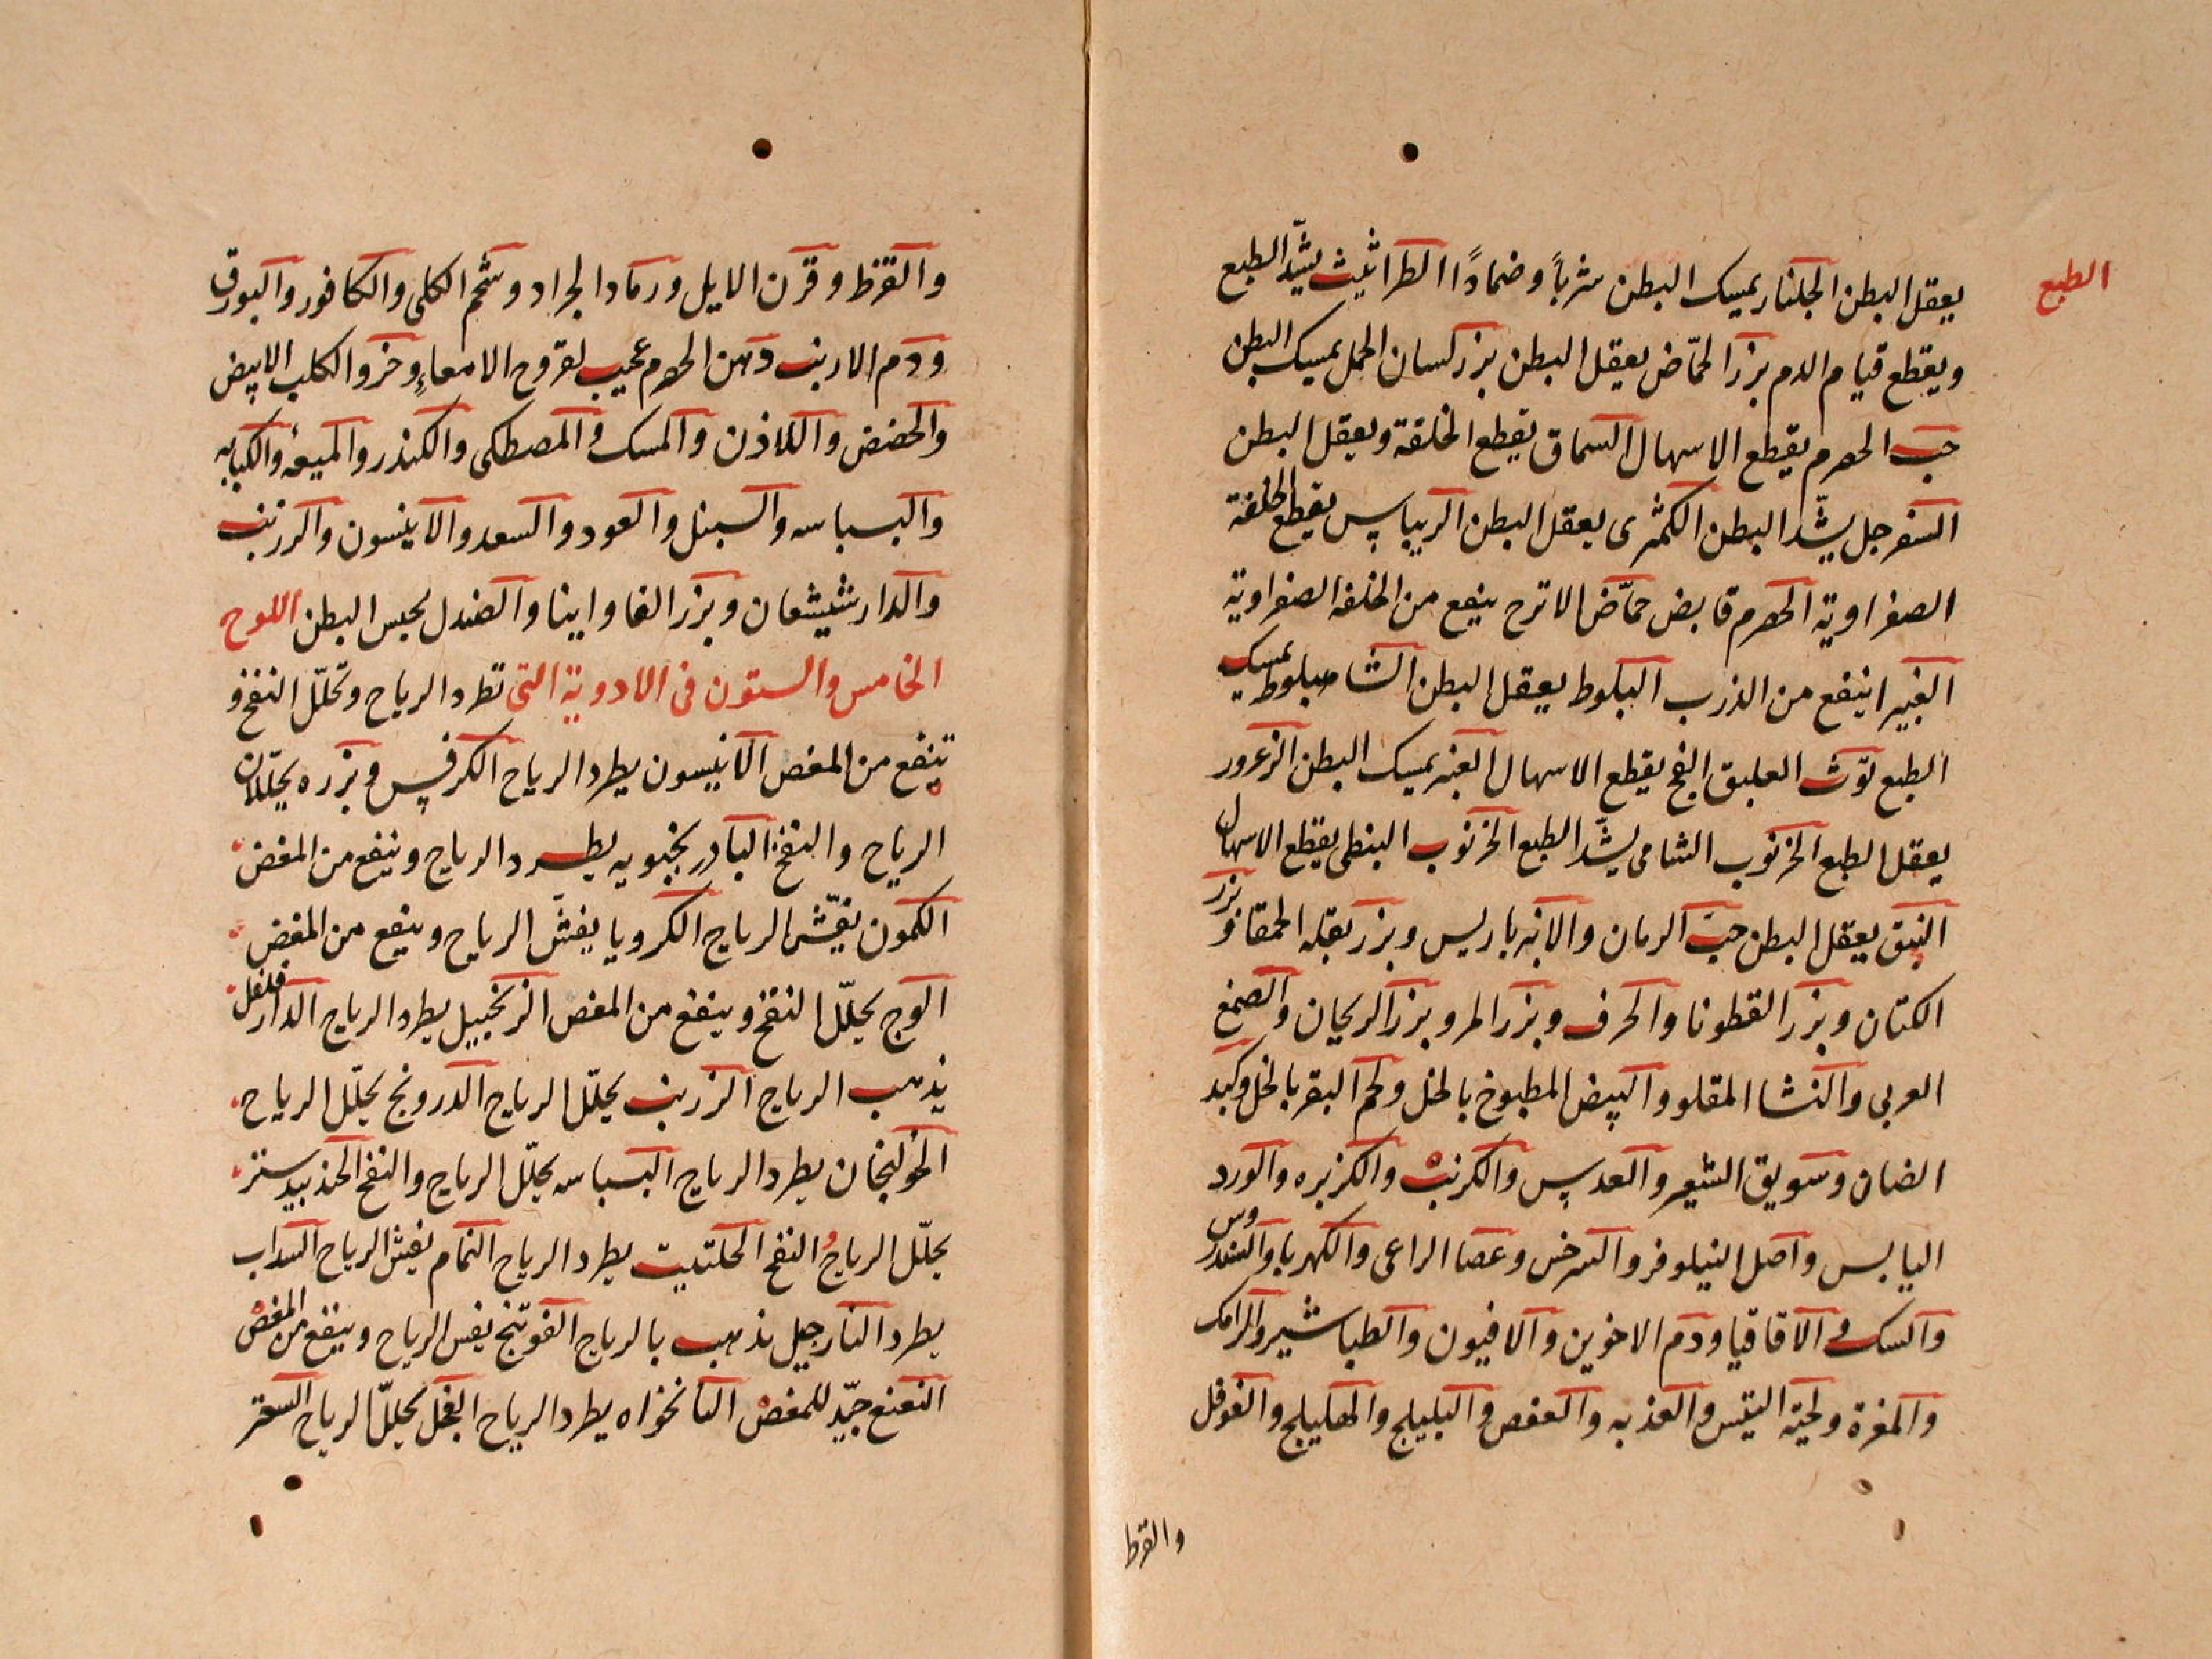 الطبع
يعقل البطن الجلنار يمسك البطن شرباً وضماداً الطراثيث يشدّ الطبع
ويقطع قيام الدم بزر الحمّاض يعقل البطن بزر لسان الحمل يمسك البطن
حب الحصرم يقطع الاسهال السماق يقطع الخلفة ويعقل البطن
السفرجل يشدّ البطن الكمثرى يعقل البطن الريباس يقطع الخلفة
الصفراوية الحصرم قابض حمّاض الاترج ينفع من الخلفه الصفراوية
الغبيرا ينفع من الذرب البلوط يعقل البطن الشاهبلوط يمسك
الطبع توث العليق الفج يقطع الاسهال العنب يمسك البطن الزعرور
يعقل الطبع الخرنوب الشامى يشدّ الطبع الخرنوب النبطى يقطع الاسهال
النبق يعقل البطن حبّ الرمان والانبرباريس وبزر بقله الحمقا وبزر
الكتان وبزر القطونا والحرف وبزر المر وبزر الريحان والصمغ
العربى والنشا المقلو والبيض المطبوخ بالخل ولحم البقر بالخل وكبد
الضان وسويق الشعير والعدس والكرنب والكزبره والورد
اليابس واصل النيلوفر والسرخس وعصا الراعى والكهربا والسندروس
والسك والاقاقيا ودم الاخوين والافيون والطباشير والرامك
والمغرة ولحية التيس والعذبه والعفص والبليلج والهليلج والفوفل
والقرط
والقرظ وقرن الايل ورماد الجراد وشحم الكلى والكافور والبورق
ودم الارنب دهن الحصرم عجيب لقروح الامعاءِ وخرو الكلب الابيض
والحضض واللاذن والمسك والمصطكى والكندر والميعه والكبابه
والبسباسه والسنبل والعود والسعد والانيسون والزرنب
والدارشيشعان وبزر الفاواينا والصندل يحبس البطن اللوح
الخامس والستون فى الادوية التى تطرد الرياح وتحلّل النفخ و
تنفع من المغص الانيسون يطرد الرياح الكرفس وبزره يحلّلان
الرياح والنفخ البادرنجبويه يطرد الرياح وينفع من المغص
الكمون يفشّ الرياح الكرويا يفشّ الرياح وينفع من المغص
الوج يحلّل النفخ وينفع من المغص الزنجبيل يطرد الرياح الدارفلفل
يذهب الرياح الزرنب يحلّل الرياح الدرونج يحلّل الرياح
الخولنجان يطرد الرياح البسباسه يحلّل الرياح والنفخ الجندبيدستر
يحلّل الرياح النفخ الحلتيت يطرد الرياح النمام يفش الرياح السداب
يطرد النارجيل يذهب بالرياح الفوتنج يفس الرياح وينفع من المغص
النعنع جيّد للمغص النانخواه يطرد الرياح الفجل يحلّل الرياح السعتر